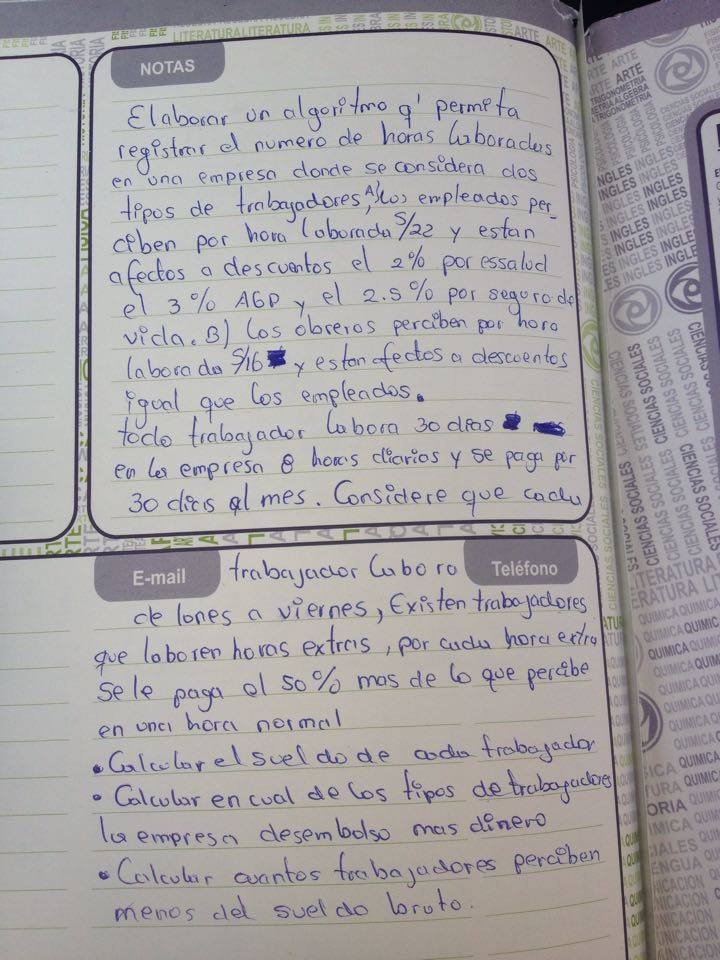 LITERATURA LITERATURA
ARTE ARTE
NOTAS
Elaborar un algoritmo q' permita
registrar el numero de horas laboradas
en una empresa donde se considera dos
tipos de trabajadores, A) los empleados per_
ciben por hora laborada S/22 y estan
afectos a descuentos el 2% por essalud
el 3% AGP y el 2.5% por seguro de
vida. B) los obreros perciben por hora
laborada S/16 y estan afectos a descuentos
igual que los empleados.
todo trabajador labora 30 dias
en la empresa 8 horas diarios y se paga por
30 dias al mes. Considere que cada
E-mail
trabajador laboro
Teléfono
de lones a viernes, Existen trabajadores
que laboren horas extras, por cada hora extra
se le paga el 50% mas de lo que percibe
en una hora normal
• Calcular el sueldo de cada trabajador
• Calcular en cual de los tipos de trabajadores
la empresa desembolso mas dinero
• Calcular cuantos trabajadores perciben
menos del sueldo bruto.
ARTE ARTE
TRIGONOMETRIA
INGLES INGLES INGLES
CIENCIAS SOCIALES
LITERATURA
QUIMICA QUIMICA